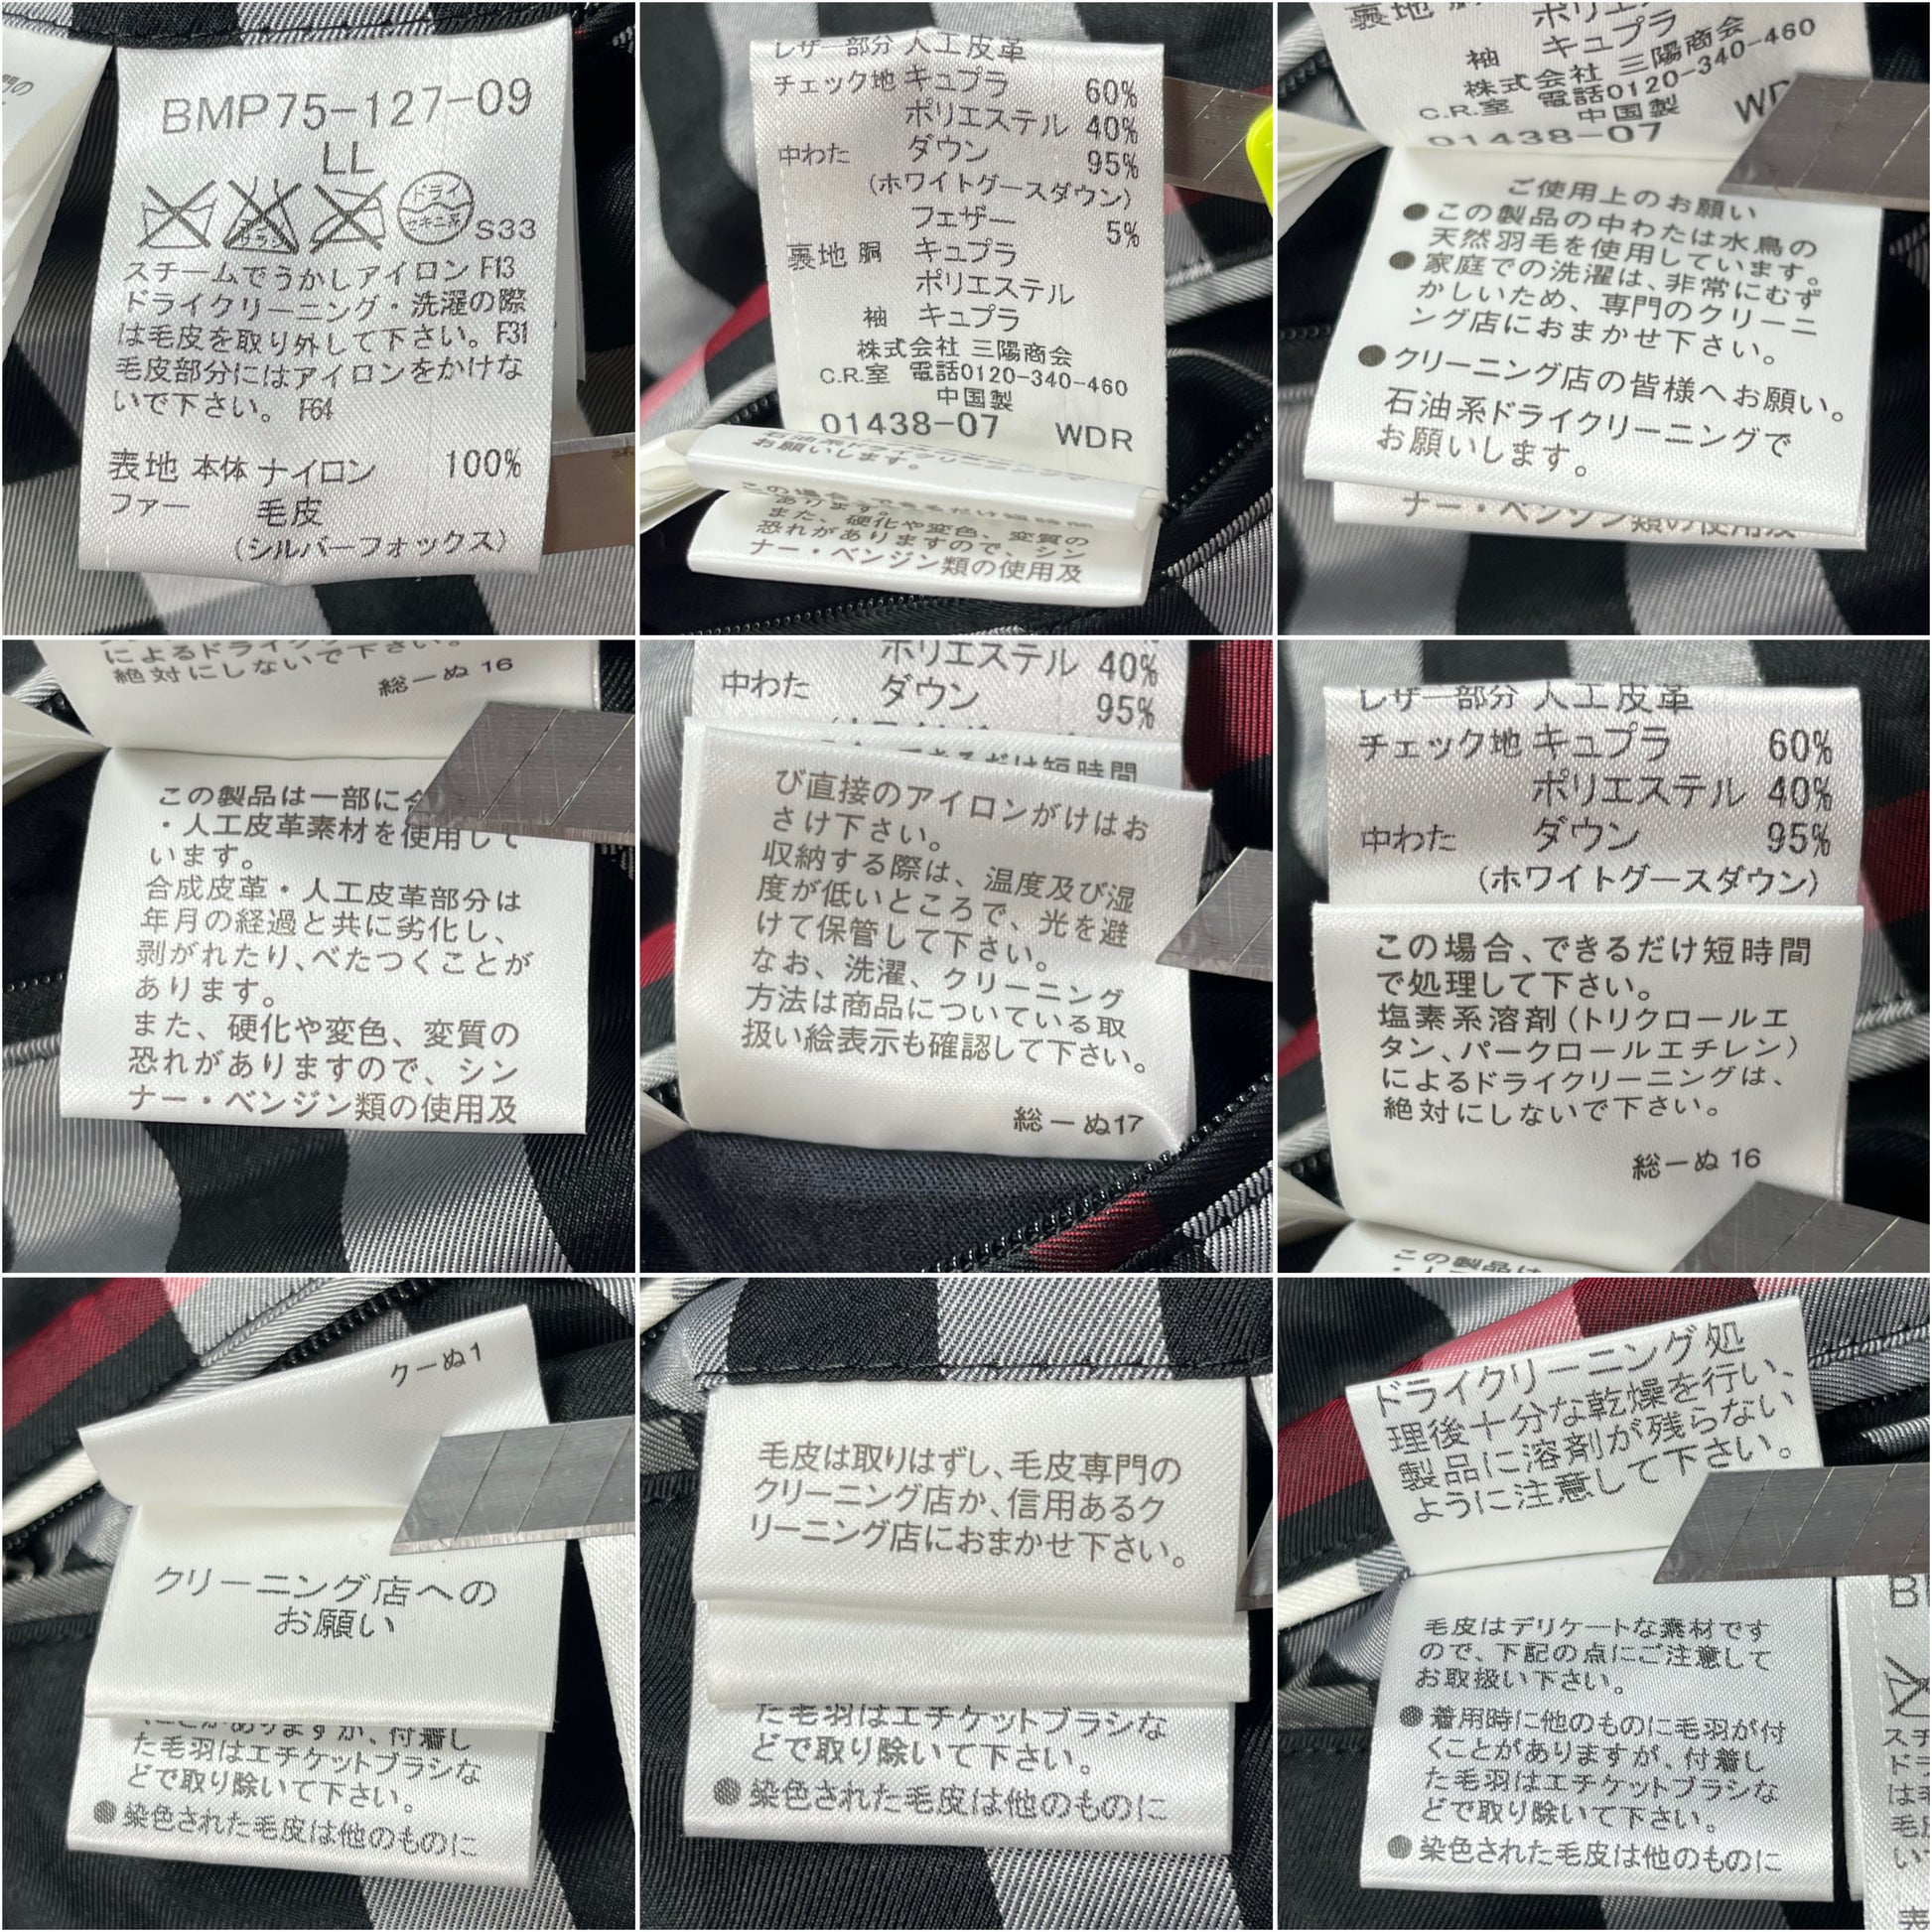 BMP75-127-09
LL
ドライ
セキユ系
S33
スチームでうかしアイロン F13
ドライクリーニング・洗濯の際
は毛皮を取り外して下さい。F31
毛皮部分にはアイロンをかけな
いで下さい。 F64
表地 本体 ナイロン 100%
ファー 毛皮
(シルバーフォックス)
レザー部分 人工皮革
チェック地 キュプラ 60%
ポリエステル 40%
中わた ダウン 95%
(ホワイトグースダウン)
フェザー 5%
裏地 胴 キュプラ
ポリエステル
袖 キュプラ
株式会社 三陽商会
C.R.室 電話0120-340-460
中国製
01438-07 WDR
石油系ドライクリーニングで
お願いします。
この場合、できるだけ短時間
あります。
また、硬化や変色、変質の
恐れがありますので、シン
ナー・ベンジン類の使用及
裏地 胴
袖 キュプラ
株式会社 三陽商会
C.R.室 電話0120-340-460
中国製
01438-07
ご使用上のお願い
●この製品の中わたは水鳥の
天然羽毛を使用しています。
●家庭での洗濯は、非常にむず
かしいため、専門のクリーニ
ング店におまかせ下さい。
●クリーニング店の皆様へお願い。
石油系ドライクリーニングで
お願いします。
ナー・ベンジン類の使用及
絶対にしないで下さい。
総ーぬ 16
この製品は一部に合
・人工皮革素材を使用して
います。
合成皮革・人工皮革部分は
年月の経過と共に劣化し、
剥がれたり、べたつくことが
あります。
また、硬化や変色、変質の
恐れがありますので、シン
ナー・ベンジン類の使用及
ポリエステル 40%
中わた ダウン 95%
び直接のアイロンがけはお
さけ下さい。
収納する際は、温度及び湿
度が低いところで、光を避
けて保管して下さい。
なお、洗濯、クリーニング
方法は商品についている取
扱い絵表示も確認して下さい。
総ーぬ17
レザー部分 人工皮革
チェック地 キュプラ 60%
ポリエステル 40%
中わた ダウン 95%
(ホワイトグースダウン)
この場合、できるだけ短時間
で処理して下さい。
塩素系溶剤(トリクロールエ
タン、パークロールエチレン)
によるドライクリーニングは、
絶対にしないで下さい。
総ーぬ 16
クーぬ1
クリーニング店への
お願い
た毛羽はエチケットブラシな
どで取り除いて下さい。
●染色された毛皮は他のものに
毛皮は取りはずし、毛皮専門の
クリーニング店か、信用あるク
リーニング店におまかせ下さい。
た毛羽はエチケットブラシな
どで取り除いて下さい。
●染色された毛皮は他のものに
ドライクリーニング処
理後十分な乾燥を行い、
製品に溶剤が残らない
ように注意して下さい。
毛皮はデリケートな素材です
ので、下記の点にご注意して
お取扱い下さい。
●着用時に他のものに毛羽が付
くことがありますが、付着し
た毛羽はエチケットブラシな
どで取り除いて下さい。
●染色された毛皮は他のものに